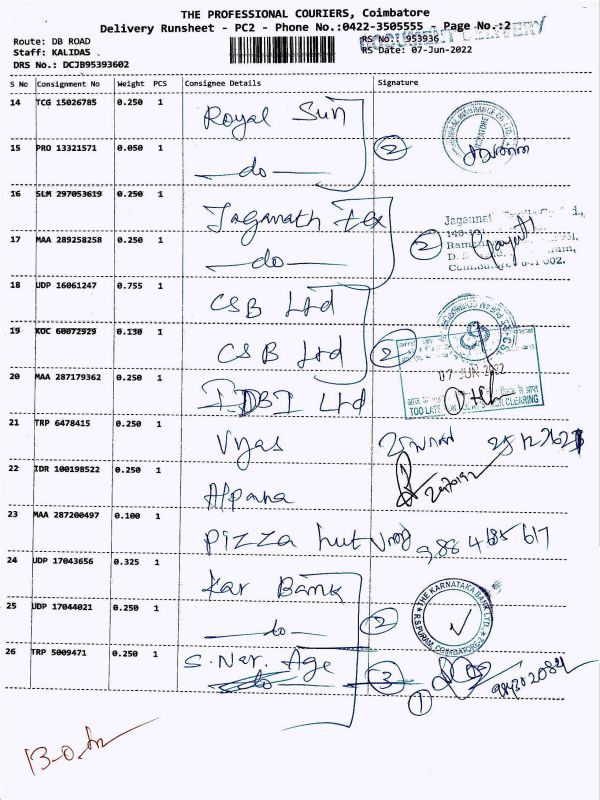 THE PROFESSIONAL COURIERS, Coimbatore
Delivery Runsheet - PC2 - Phone No.:0422-3505555 - Page No.:2
Route: DB ROAD
RS No.: 953936
Staff: KALIDAS .
RS Date: 07-Jun-2022
DRS No.: DCJB95393602
S No Consignment No Weight PCS Consignee Details Signature
14 TCG 15026785 0.250 1 Royal Sun
15 PRO 13321571 0.050 1 do 2
16 SLM 297053619 0.250 1 Jaganath tex
17 MAA 289258258 0.250 1 do 2
18 UDP 16061247 0.755 1 CSB Ltd
19 KOC 60072929 0.130 1 CSB Ltd 2
07 JUN 2022
20 MAA 287179362 0.250 1 IDBI Ltd
TOO LATE CLEARING
21 TRP 6478415 0.250 1 Vyas
22 IDR 100198522 0.250 1 Alpana
23 MAA 287200497 0.100 1 Pizza hut
24 UDP 17043656 0.325 1 Kar Bank
THE KARNATAKA BANK LTD.
R S PURAM, COIMBATORE-2
25 UDP 17044021 0.250 1 do 2
26 TRP 5009471 0.250 1 S. Nar. Age 3 1
do